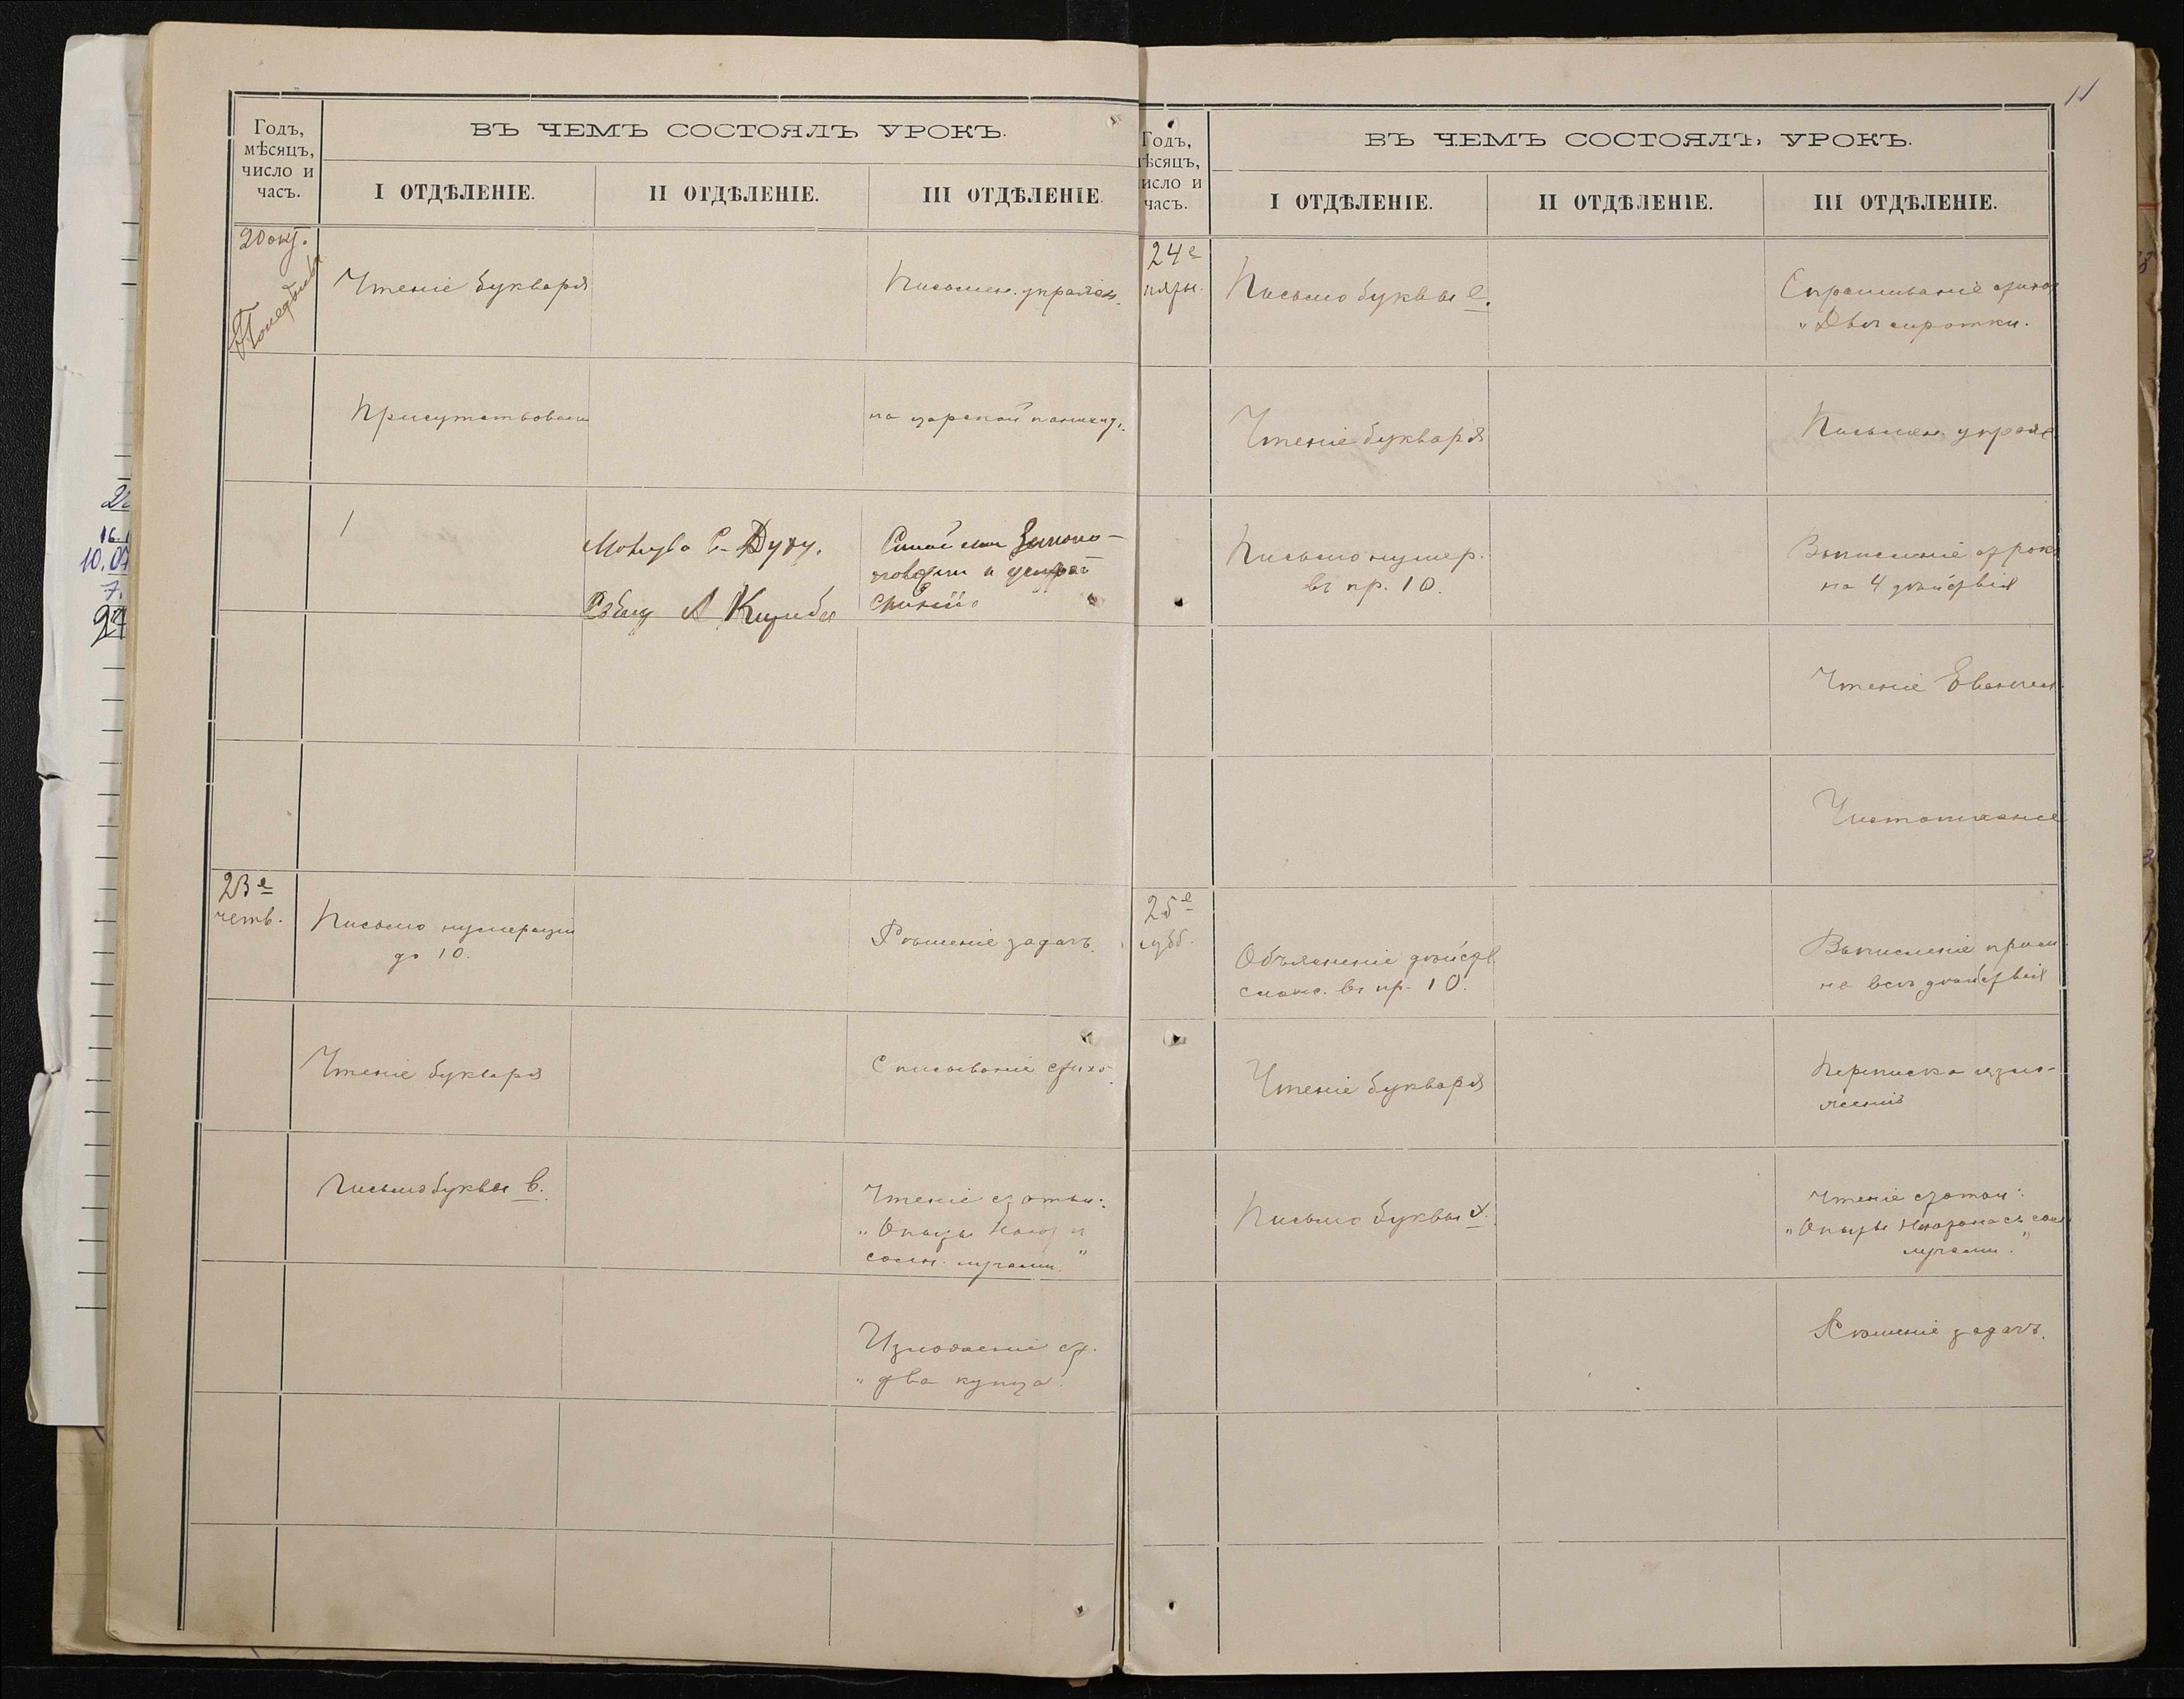 11
Годъ,
мѣсяцъ,
число и
часъ.
ВЪ ЧЕМЪ СОСТОЯЛЪ УРОКЪ.
I ОТДѢЛЕНІЕ.
II ОТДѢЛЕНІЕ.
III ОТДѢЛЕНІЕ.
20 окт.
Понедѣльн
Чтеніе букваря
Письмен. упражн.
Присутствовали
на царской панихид.
Молитва Св. Духу.
Синайское Законо-
Рабиц А Кицеба
23е
четв.
Письмо нумераціи
до 10.
Рѣшеніе задачъ.
Чтеніе букваря
Списываніе стихо
Письмо буквы в.
Чтеніе статьи:
„Опыты Наказ и
солн. лучами."
Изложеніе ст.
„два купца".
Годъ,
ѣсяцъ,
исло и
часъ.
ВЪ ЧЕМЪ СОСТОЯЛЪ УРОКЪ.
I ОТДѢЛЕНІЕ.
II ОТДѢЛЕНІЕ.
III ОТДѢЛЕНІЕ.
24е
пятн.
Письмо буквы е.
Спрашиваніе стихот
„Двѣ сиротки.
Чтеніе букваря
Письмен. упраж
Письмо нумер.
въ пр. 10.
Вычисленіе
на 4 дѣйствія
Чтеніе Евангел.
Чистописаніе
25е
субб.
Объясненіе дѣйств.
слож. въ пр. 10.
Вычисленіе прим.
на всѣ дѣйствія
Чтеніе букваря
Переписка изло-
женія
Письмо буквы х.
Чтеніе статьи:
„Опыты с солн
лучами."
Рѣшеніе задачъ.